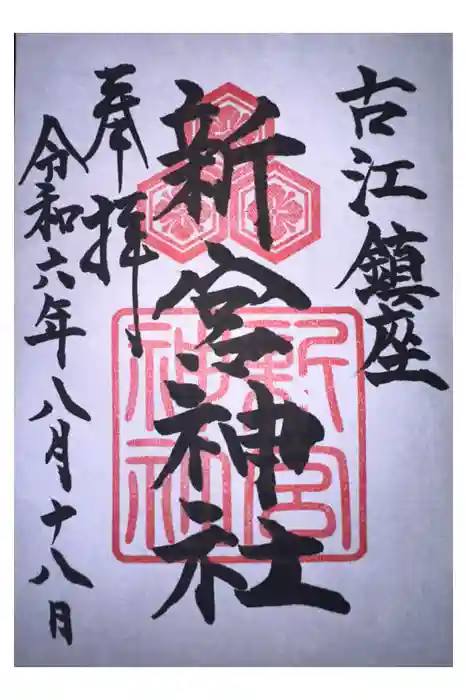 古江鎮座
新宮神社
奉拝
令和六年八月十八月
新宮神社